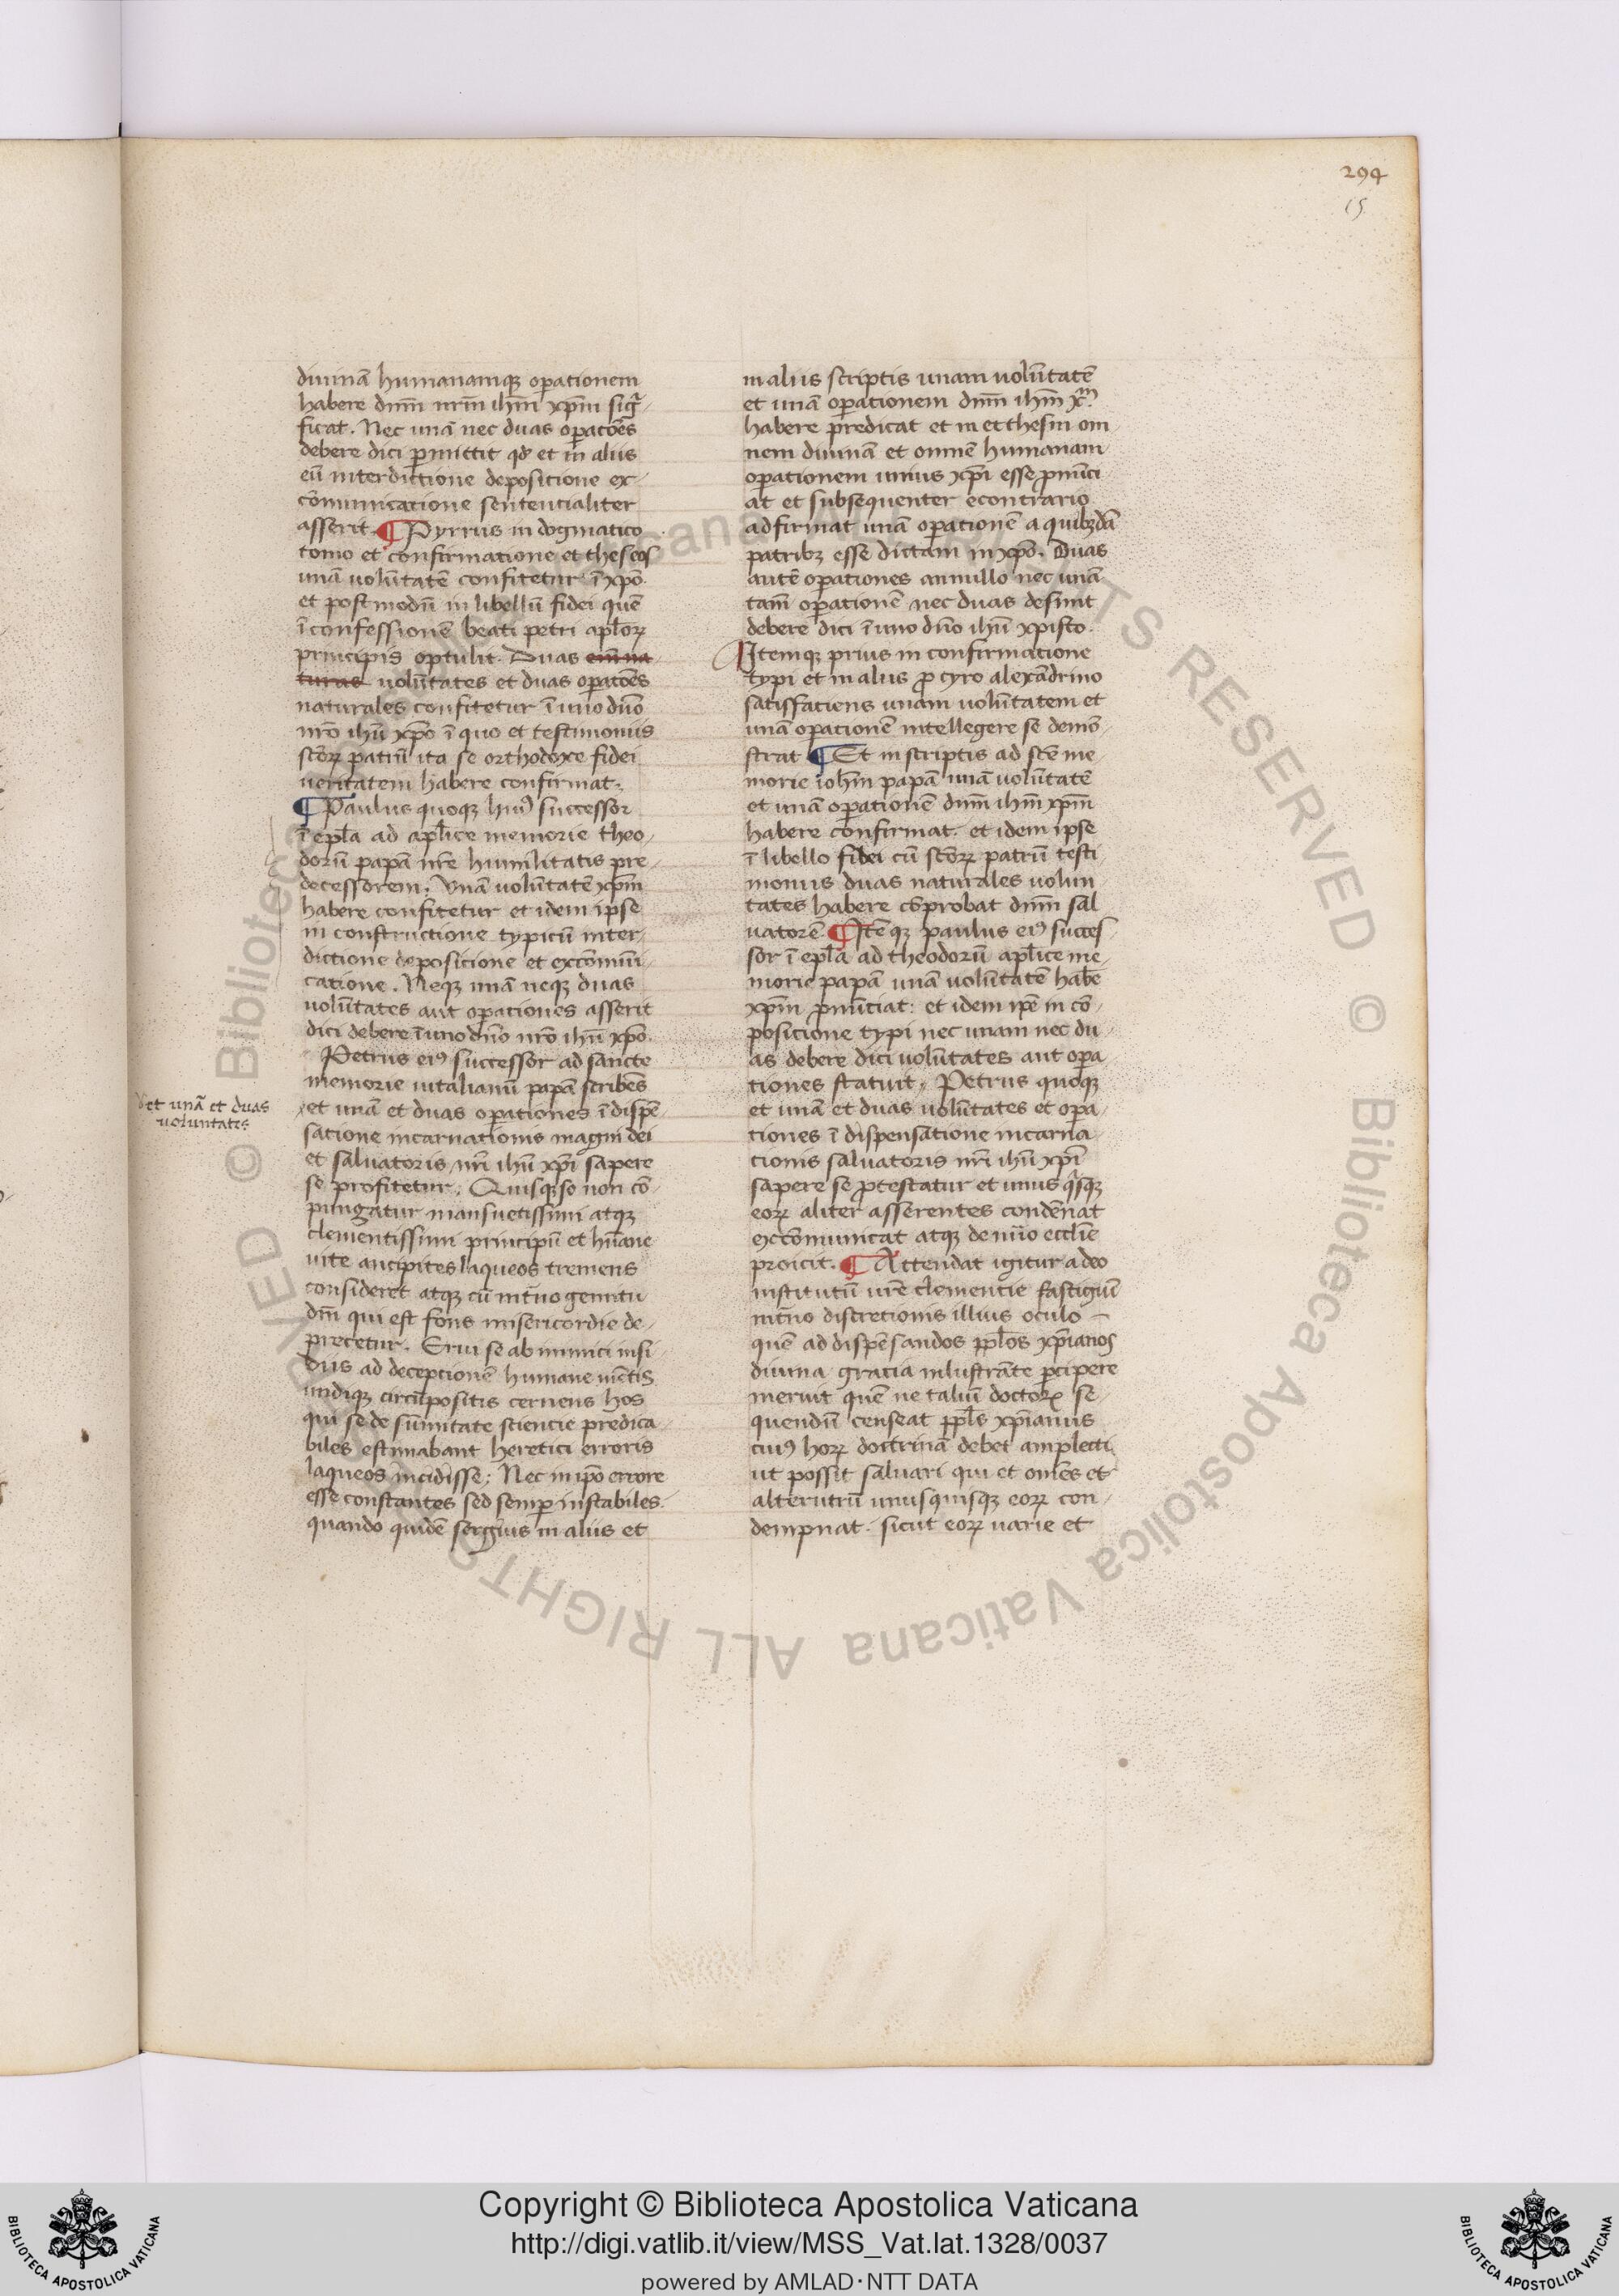 294
15
diuinā humanamqꝫ oꝑationem
habere dnm̄ nrm̄ ihm̄ xp̄m sig̃-
ficat. Nec unā nec duas oꝑatōēs
debere dici ꝑmittit qd̄ et in aliis
eū interdictione depositione ex-
cōmunicatione sententialiter
asserit. ¶ Pyrrus in dogmatico
tomo et confirmatione et theseos
unā volūtatē confitetur ī xp̄o
et post modū in libellū fidei quē
ī confessionē beati petri apl̄oꝝ
principis optulit. Duas em̄ na-
turas volūtates et duas oꝑatōēs
naturales confitetur ī uno dn̄o
nr̄o ihū xp̄o ī quo et testimoniis
scōꝝ patrū ita se orthodoxe fidei
veritatem habere confirmat.
¶ Paulus quoqꝫ huiꝰ successor
ī epl̄a ad apl̄ice memorie theo-
dorū papā nr̄e humilitatis pre-
decessorem. Vnā voluntatē xp̄m
habere confitetur et idem ipse
in constructione typicū inter-
dictione depositione et excōmūi-
catione. Neqꝫ unā neqꝫ duas
volūtates aut oꝑationes asserit
dici debere ī uno dn̄o nr̄o ihū xp̄o.
Petrus eiꝰ successor ad sancte
memorie uitalianū papā scribēs
et unā et duas oꝑationes ī dispē-
et unā et duas
voluntates
satione incarnationis magni dei
et saluatoris nr̄i ihū xp̄i sapere
se profitetur. Quis qꝫso non cō-
pungatur mansuetissimi atqꝫ
clementissimi principū et hūane
uite ancipites laqueos tremens
consideret atqꝫ cū intuo gemitu
dm̄ qui est fons misericordie de-
precetur. Erui se ab inimici insi-
diis ad decepcionē humane mētis
undiqꝫ circūpositis cernens hos
qui se de sūmitate sciencie predica-
biles estimabant heretici erroris
laqueos incidisse; Nec in ip̄o errore
esse constantes sed semꝑ instabiles.
quando quidē sergius in aliis et
in aliis scriptis unam volūtatē
et unā oꝑationem dnm̄ ihm̄ xp̄m
habere predicat et in ecthesin om-
nem diuinā et omnē humanam
oꝑationem unius xp̄i esse ꝓnūci-
at et subsequenter econtrario
adfirmat unā oꝑationē a quibꝫdā
patribꝫ esse dictam in xp̄o. Duas
autē oꝑationes annullo nec unā
tam̄ oꝑationē nec duas desinit
debere dici ī uno dn̄o ihū xpisto.
Itemqꝫ prius in confirmatione
typi et in aliis ꝓ cyro alexādrino
satisfaciens unam volūtatem et
unā oꝑationē intellegere se demō-
strat ¶ Et in scriptis ad scē me-
morie ioh̄m papā unā volūtatē
et unā oꝑationē dnm̄ ihm̄ xp̄m
habere confirmat. et idem ipse
ī libello fidei cū scōꝝ patrū testi-
moniis duas naturales volun-
tates habere cōprobat dnm̄ sal-
uatorē. ¶ Itē qꝫ paulus eiꝰ succes-
sor ī epl̄a ad theodorū apl̄ice me-
morie papā unā volūtatē hab̄e
xp̄m ꝓnūciat: et idem ip̄e in cō-
posicione typi nec unam nec du-
as debere dici volūtates aut oꝑa-
tiones statuit. Petrus quoqꝫ
et unā et duas volūtates et oꝑa-
tiones ī dispensatione incarna-
cionis saluatoris nr̄i ihū xp̄i
sapere se ꝓtestatur et unus qͥsqꝫ
eoꝝ aliter asserentes condēnat
excōmunicat atqꝫ de nūo ecclīe
proicit. ¶ Attendat igitur a deo
institutū ur̄e clementie fastigiū
int̄no discretionis illius oculo –
quē ad dispēsandos ppl̄os xp̄ianos
diuina gracia inlustrāte ꝑcipere
meruit quē ne taliū doctoꝝ se-
quendū censeat ppl̄s xp̄ianus
cuiꝰ hoꝝ doctrinā debet amplecti
ut possit saluari qui et om̄es et
alterutrū unusquisqꝫ eoꝝ con-
dempnat. sicut eoꝝ uarie et
Copyright © Biblioteca Apostolica Vaticana
http://digi.vatlib.it/view/MSS_Vat.lat.1328/0037
powered by AMLAD·NTT DATA
BIBLIOTECA APOSTOLICA VATICANA
BIBLIOTECA APOSTOLICA VATICANA
© Biblioteca Apostolica Vaticana ALL RIGHTS RESERVED